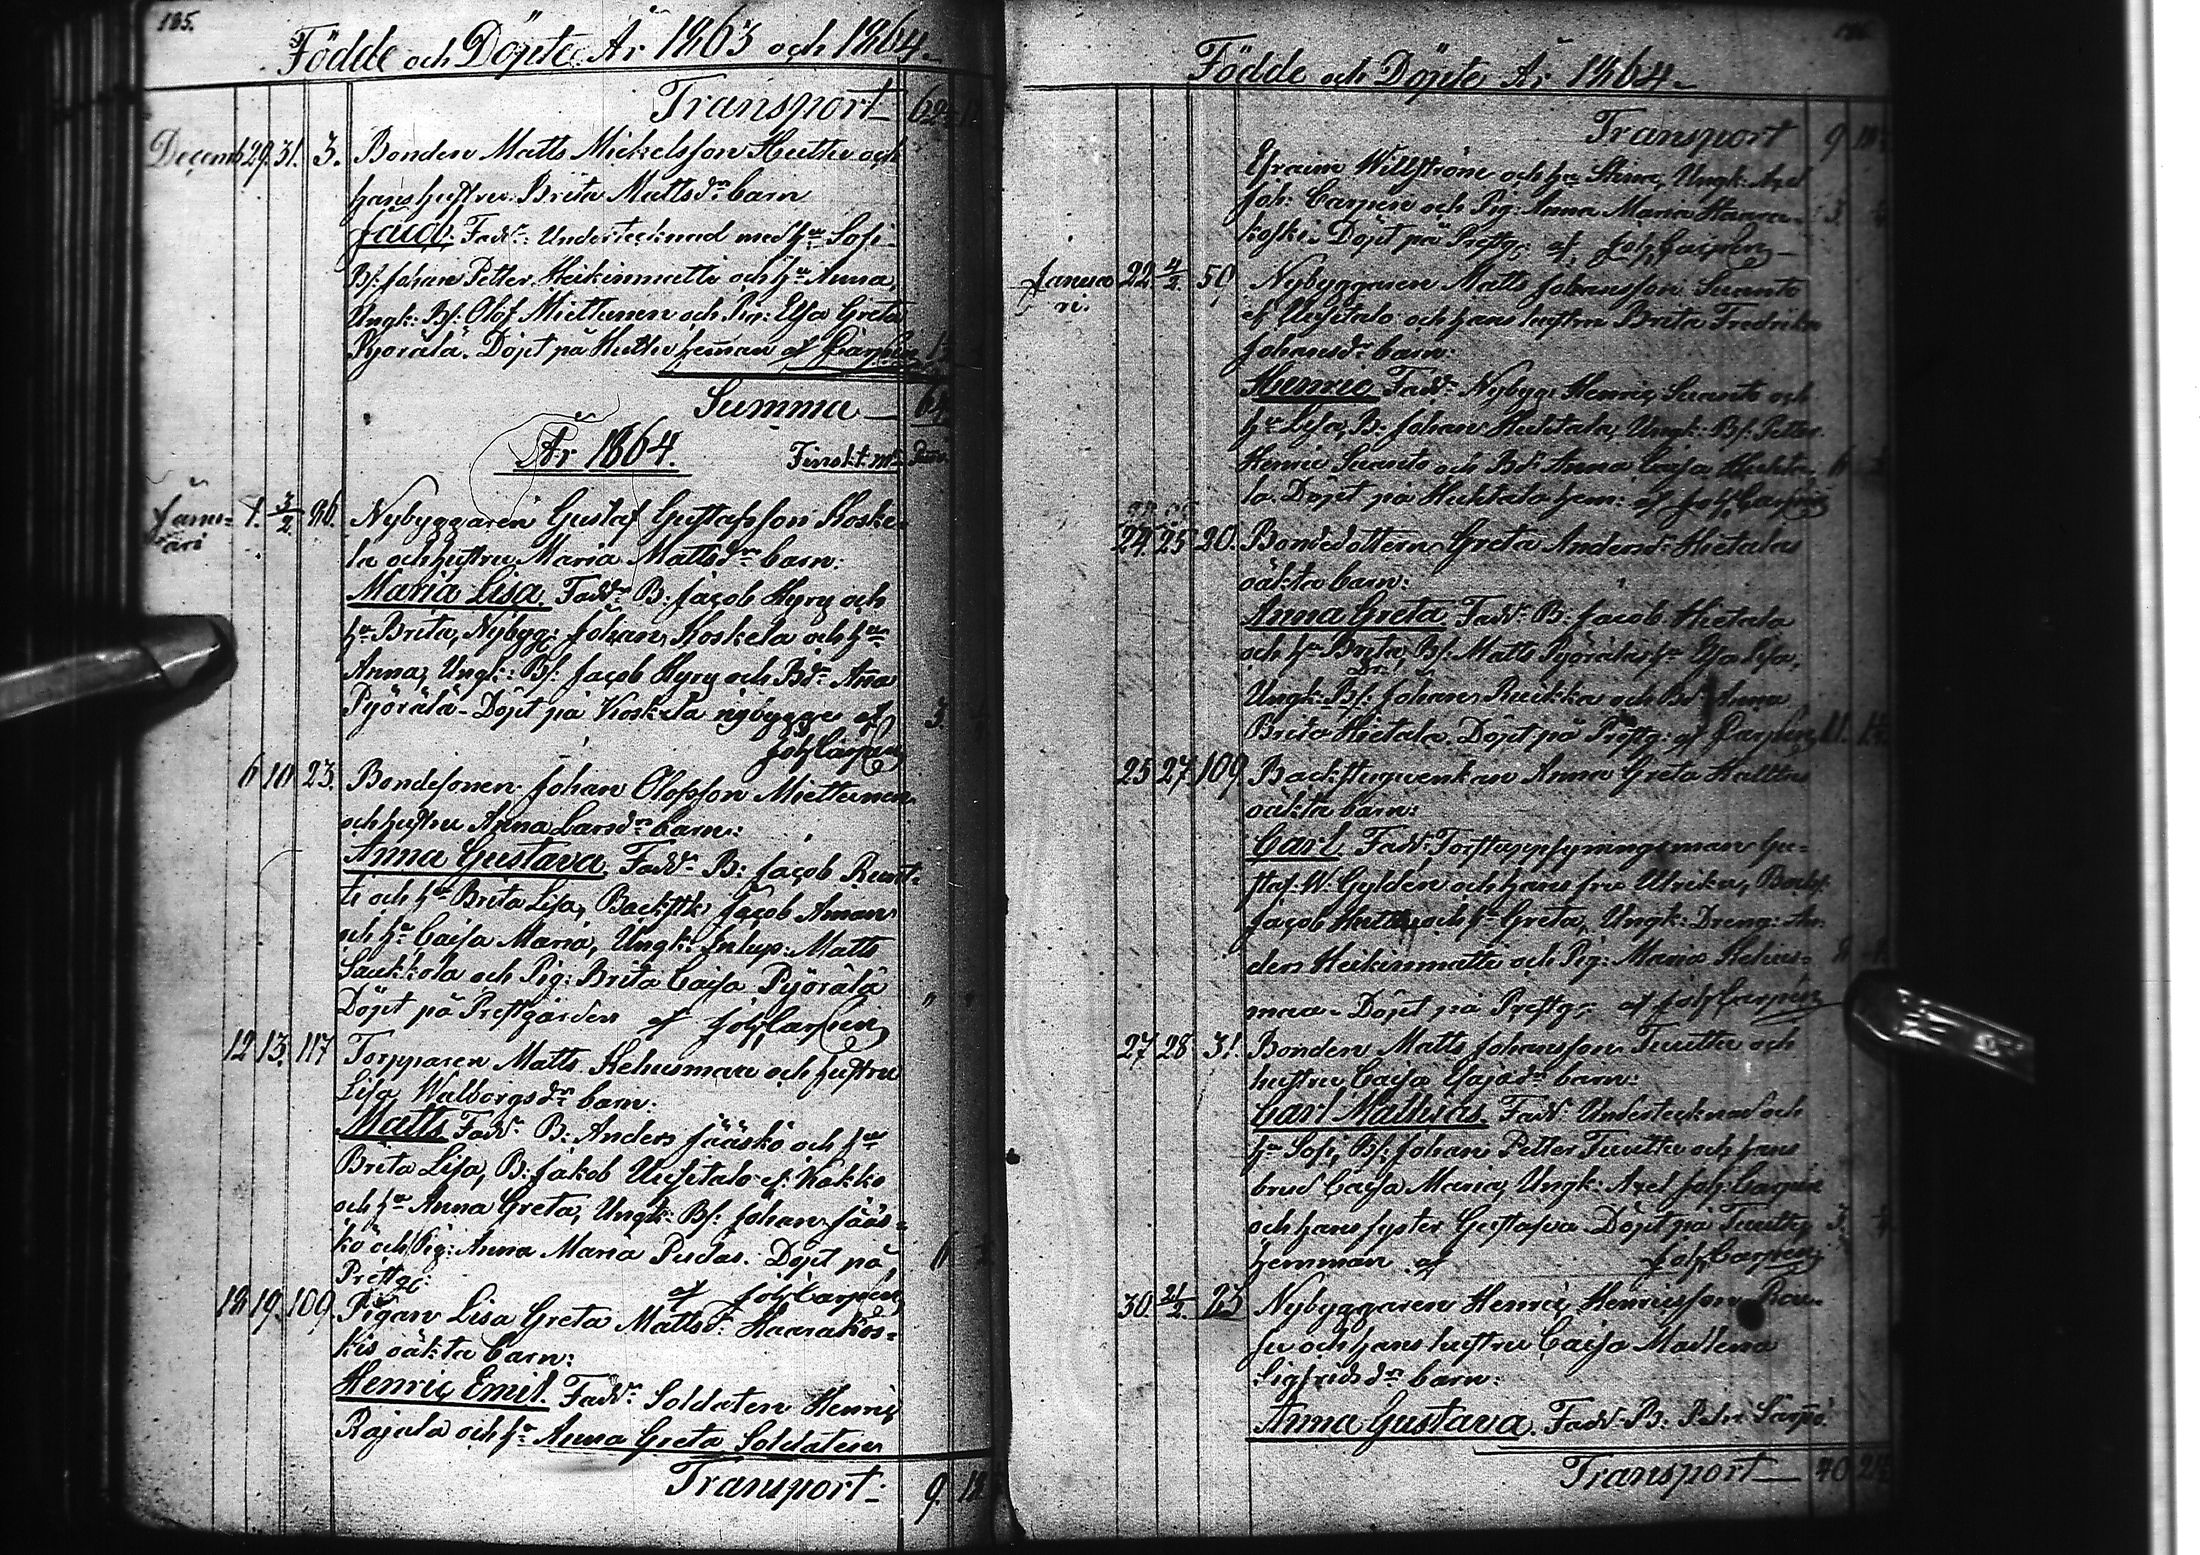 185.
Födde och Döpte År 1863 och 1864.
Transport 62
Decemb. 29. 31. 3. Bonden Matts Mickelsson Huttu och
hans hustru Brita Mattsdr barn
Jacob. Faddr: Undertecknad med hu Sofi
Bs. Johan Petter Heikinmatti och hu Anna,
Ungk: Bs: Olof Miettunen och Pig: Elsa Greta
Pyörälä. Döpt på Huttu heman af Carpén
Summa 64
År 1864. Finskt m:
Janu-
ari 1. 3/2 96. Nybyggaren Gustaf Gustafsson Koske-
la och hustru Maria Mattsdr barn:
Maria Lisa. Faddr B: Jacob Hyry och
hu Brita, Nybyg: Johan Koskela och hu
Anna, Ungk: Bs: Jacob Hyry och Bdr Ana
Pyörälä - Döpt på Koskela nybygge af 3
Joh. Carpén
6 10 23. Bondesonen Johan Olofsson Miettunen
och hustru Anna Larsdr barn:
Anna Gustava. Faddr B: Jacob Runt-
ti och hu Brita Lisa, Backstk Jacob Aman
och hu Caisa Maria, Ungk: Inhys: Matts
Saukkola och Pig: Brita Caisa Pyörälä
Döpt på Prestgården af Joh. Carpén
12 13. 117 Torpparen Matts Kehusmaa och hustru
Lisa Walborgsdr barn:
Matts Faddr B: Anders Jääskö och hu
Brita Lisa, B: Jakob Uusitalo el. Kakko
och hu Anna Greta, Ungk: Bs: Johan Jääs-
kö och Pig: Anna Maria Pudas. Döpt på 6
Prestg: af Joh. Carpén
18 19. 109. Pigan Lisa Greta Mattsdr Haarakos-
kis oäkta barn:
Henric Emil. Faddr Soldaten Henric
Rajala och hu Anna Greta Soldaten
Transport 9.
186
Födde och Döpte År 1864
Transport 9
Efraim Willström och hu Stina, Ungk: Axel
Joh: Carpén och Pig: Anna Maria Haara- 3.
koski. Döpt på Prestg: af Joh. Carpén
Janua
ri. 22 4/2 50 Nybyggaren Matts Johansson Suanto
el Uusitalo och hans hustru Brita Fredrika
Johansdr barn:
Henric Faddr Nybyg: Henric Suanto och
hu Lisa, B. Johan Huhtala, Ungk: Bs: Petter
Henric Suanto och Bdr Anna Caisa Huhta- 6
la. Döpt på Huhtala hem: af Joh. Carpén
24. 25 20. Bondedottern Greta Andersdr Hietalas
oäkta barn:
Anna Greta Faddr B: Jacob Hietala
och hu Brita, Bs. Matts Pyöräläs hu
Ungk: Bs: Johan Ruikka och Bdr Anna
Brita Hietala. Döpt på Prestg: af Carpén 11.
25 27 109 Backstuguenkan Anna Greta Halttus
oäkta barn:
Carl Faddr Torftäppsyningsman Gu-
staf W: Gyldén och hans fru Ulrika, Backs:
Jacob Huttu och hu Greta, Ungk: Dreng: An-
ders Heikinmatti och Pig: Maria Kehus-
maa - Döpt på Prestg: af Joh. Carpén
27 28 31. Bonden Matts Johansson Tuuttu och
hustru Caisa Esajædr barn:
Carl Mathias. Faddr Undertecknad och
hu Sofi, Bs: Johan Petter Tuuttu och hans
brud Caisa Maria, Ungk: Axel Joh: Carpén
och hans syster Gustafva Döpt på Tuuttu 3.
hemman af Joh. Carpén
30. 21/2. 23 Nybyggaren Henric Henricsson Rau-
su och hans hustru Caisa Madlena
Sigfridsdr barn:
Anna Gustava. Faddr B: Petter Särpä
Transport 40